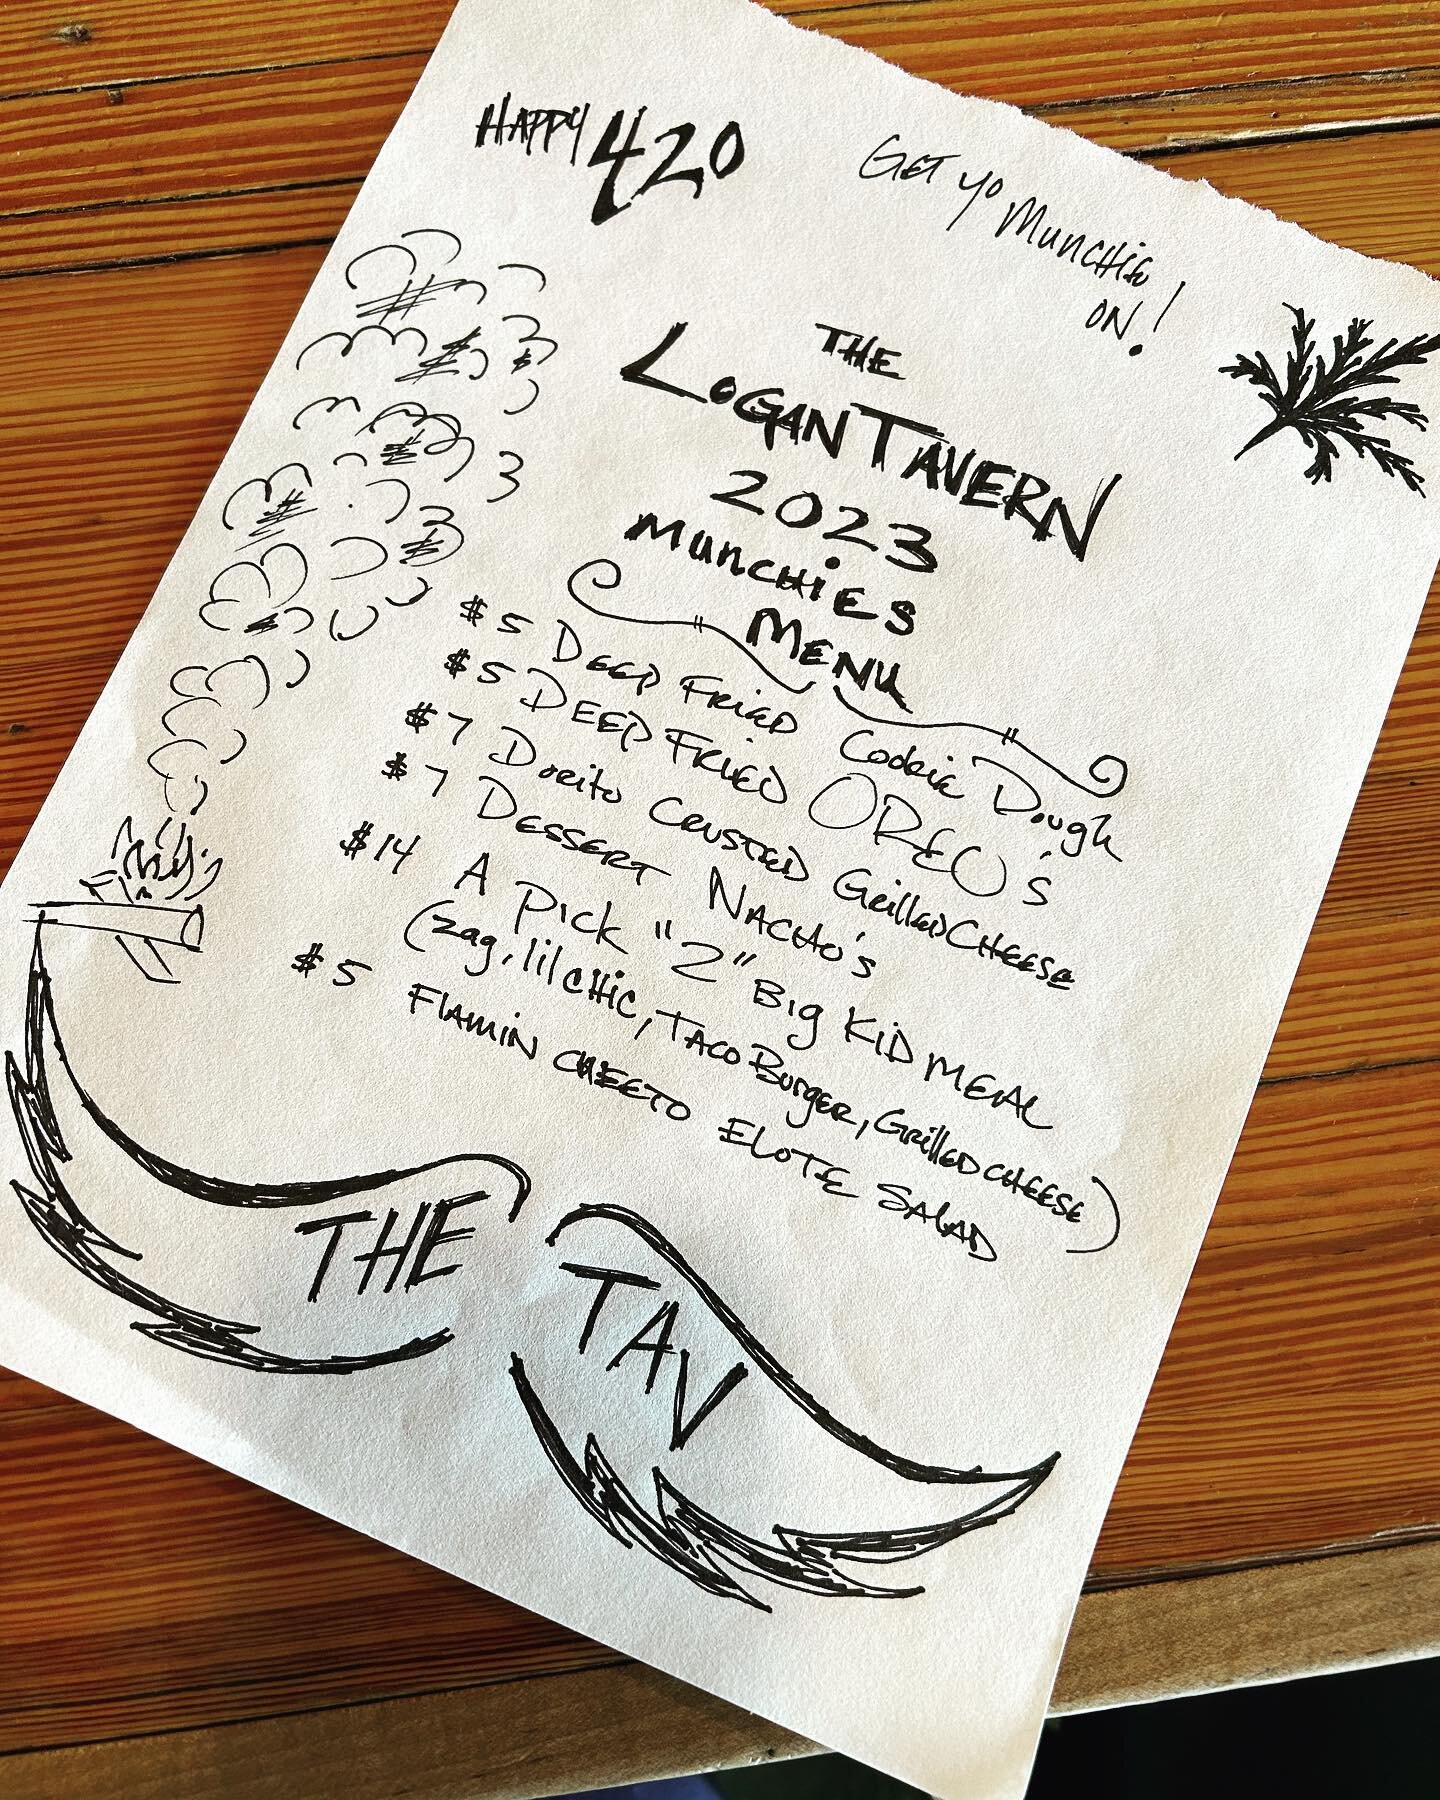 HAPPY 420
GET yo MUNCHIE
ON!
THE
LOGAN TAVERN
2023
MUNCHiES
MENU
$5 DEEP FRiED Cookie Dough
$5 DEEP FRIED OREO's
$7 Dorito CRUSTED Grilled CHEESE
$7 DESSERT NACHO's
$14 A Pick "2" Big KiD MEAL
(zag, lil CHIC, TACO Burger, Grilled CHEESE)
$5 FlAMiN CHEETO ELOTE SALAD
THE TAV